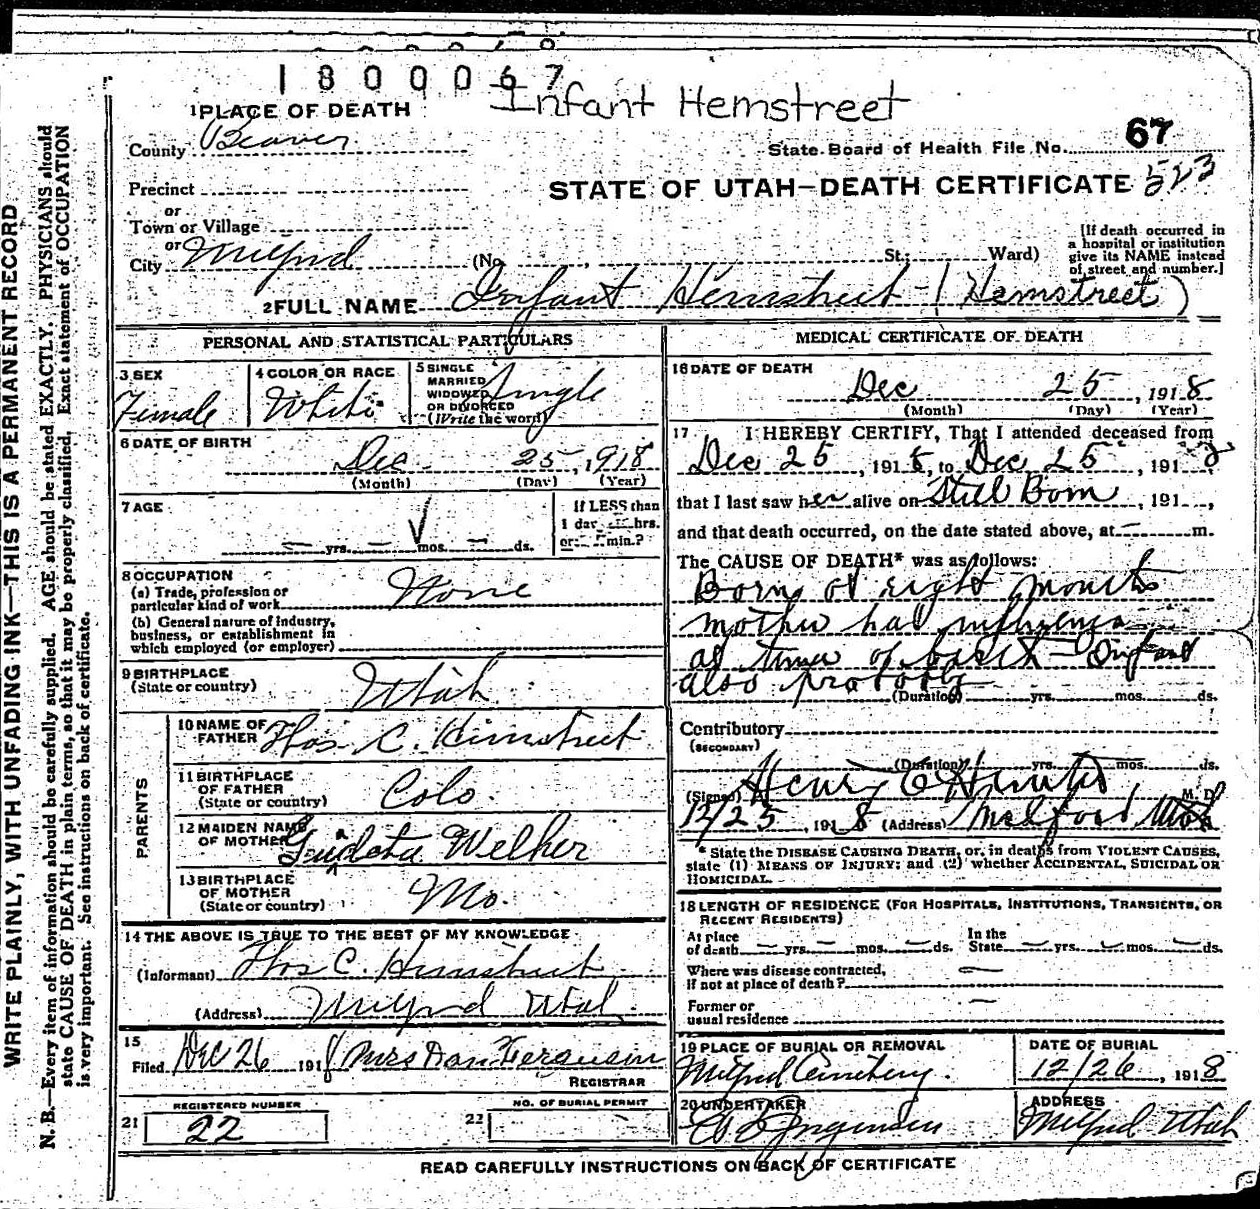 1800067
Infant Hemstreet
1 PLACE OF DEATH
County Beaver
State Board of Health File No. 67
Precinct
STATE OF UTAH—DEATH CERTIFICATE 523
or
Town or Village
or
City Milford (No. , St.; Ward)
[If death occurred in
a hospital or institution
give its NAME instead
of street and number.]
2 FULL NAME Infant Hemstreet (Hemstreet)
PERSONAL AND STATISTICAL PARTICULARS
3 SEX
Female
4 COLOR OR RACE
White
5 SINGLE
MARRIED
WIDOWED
OR DIVORCED
(Write the word)
Single
6 DATE OF BIRTH
Dec 25, 1918
(Month) (Day) (Year)
7 AGE
— yrs. — mos. — ds.
If LESS than
1 day — hrs.
or — min.?
8 OCCUPATION
(a) Trade, profession or
particular kind of work None
(b) General nature of industry,
business, or establishment in
which employed (or employer)
9 BIRTHPLACE
(State or country) Utah
PARENTS
10 NAME OF
FATHER Thos. C. Hemstreet
11 BIRTHPLACE
OF FATHER
(State or country) Colo.
12 MAIDEN NAME
OF MOTHER Welker
13 BIRTHPLACE
OF MOTHER
(State or country) Mo.
14 THE ABOVE IS TRUE TO THE BEST OF MY KNOWLEDGE
(Informant) Thos C. Hemstreet
(Address) Milford Utah.
15
Filed Dec 26 1918 Mrs Dan Ferguson
REGISTRAR
REGISTERED NUMBER
21 22
NO. OF BURIAL PERMIT
22
MEDICAL CERTIFICATE OF DEATH
16 DATE OF DEATH
Dec 25, 1918
(Month) (Day) (Year)
17 I HEREBY CERTIFY, That I attended deceased from
Dec 25, 1918, to Dec 25, 1918
that I last saw her alive on Still Born, 191 ,
and that death occurred, on the date stated above, at — m.
The CAUSE OF DEATH* was as follows:
Born at eight months
mother had influenza
at time of birth — Infant
also probably
(Duration) yrs. mos. ds.
Contributory
(SECONDARY)
(Duration) yrs. mos. ds.
(Signed) Henry C M. D.
12/25, 1918 (Address) Milford Utah
* State the DISEASE CAUSING DEATH, or, in deaths from VIOLENT CAUSES,
state (1) MEANS OF INJURY; and (2) whether ACCIDENTAL, SUICIDAL OR
HOMICIDAL.
18 LENGTH OF RESIDENCE (FOR HOSPITALS, INSTITUTIONS, TRANSIENTS, OR
RECENT RESIDENTS)
At place
of death — yrs. — mos. — ds.
In the
State — yrs. — mos. — ds.
Where was disease contracted,
If not at place of death? —
Former or
usual residence —
19 PLACE OF BURIAL OR REMOVAL
Milford Cemetery.
DATE OF BURIAL
12/26, 1918
20 UNDERTAKER
Jorgensen
ADDRESS
Milford Utah
READ CAREFULLY INSTRUCTIONS ON BACK OF CERTIFICATE
WRITE PLAINLY, WITH UNFADING INK—THIS IS A PERMANENT RECORD
N. B.—Every item of information should be carefully supplied. AGE should be stated EXACTLY. PHYSICIANS should
state CAUSE OF DEATH in plain terms, so that it may be properly classified. Exact statement of OCCUPATION
is very important. See instructions on back of certificate.